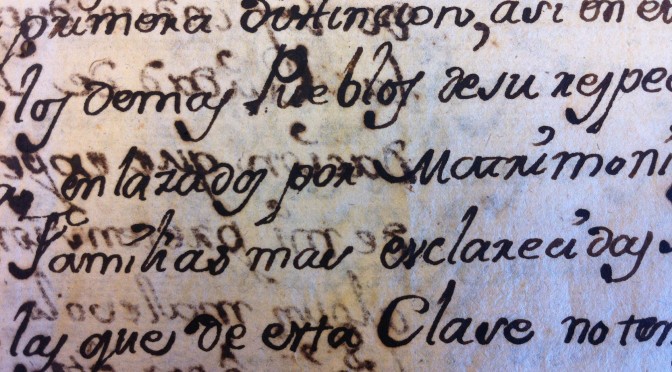 primera distincion, asi en el
los demas Pueblos de su respec
enlazados por Matrimoni
Familias mas esclarecidas
las que de esta Clase no ten